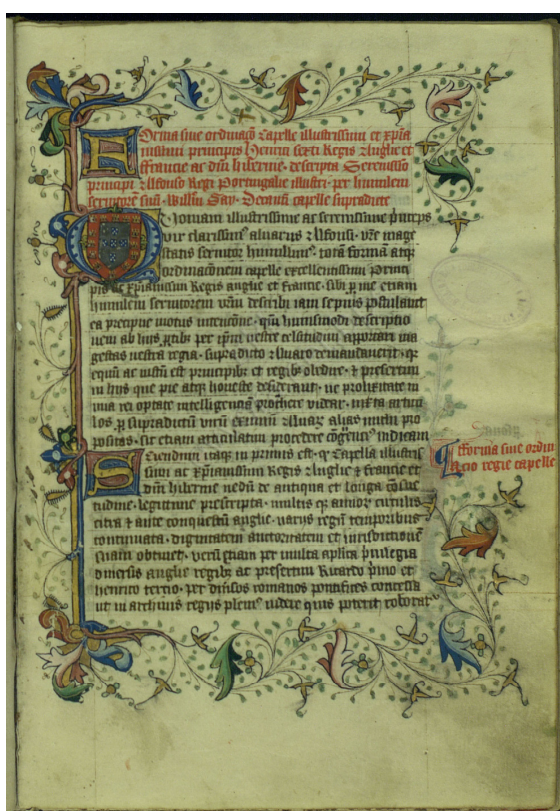 Forma siue ordinaco Capelle illustrissimi et xpia
nissimi principis Henrici sexti Regis Anglie et
ffrancie ac dni hibernie. descripta Serenissimo
principi Alfonso Regi Portugalie illustri. per humilem
seruitore suu. Willm Say. Decanu capelle supradicte
Qoniam illustrissime ac serenissime princeps
vir clarissimus aluarus Alfonsi. vre mage
statis seruitor humillimus. totam formam atqz
ordinacionem capelle excellentissimi princi
pis ac xpianissimi Regis anglie et francie. sibi p me etiam
humilem seruitorem vram describi iam sepius postulauit
ea precipue motus intencone. qm huiusmodi descriptio
nem ab hijs ptibz per ipm vestre celsitudini apportari ma
gestas vestra regia. supradicto Aluaro demandauerit. qz
equm ac iustu est principibz et regibz obedire. et presertim
in hijs que pie atqz honeste desiderant. ne prolixitate ni
mia rei optate intelligenciam prohibere videar. iuxta articu
los p supradictum viru eximiu Aluarum alias michi pro
positas. sic etiam articulatim procedere
Sciendum itaqz in primis est. qz Capella illustris
simi ac xpianissimi Regis Anglie et francie et
dni hibernie nedu de antiqua et longa consue
tudine. legitime prescripta. multis qz annorum curriculis
citra et ante conquestu anglie. varijs regum temporibus
continuata. dignitatem auctoritatem et iurisdictionem
suam obtinet. veru etiam per multa aplica priuilegia
diuersis anglie regibz ac presertim Ricardo primo et
henrico tercio. per diuersos romanos pontifices concessa
ut in archiuis regijs plenius videre quis poterit roborat
fforma siue ordin
acio regie capelle